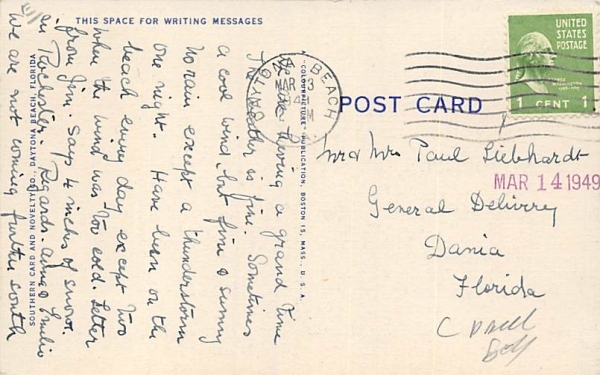 THIS SPACE FOR WRITING MESSAGES
We are having a grand time
The weather is fine. Sometimes
a cool wind but fine & sunny
No rain except a thunderstorm
one night. Have been on the
beach every day except two
when the wind was too cold. Letter
from Jim. Says 4 inches of snow.
in Rochester. Regards.
We are not coming further south
SOUTHERN CARD AND NOVELTY CO., DAYTONA BEACH, FLORIDA
"COLOURPICTURE" PUBLICATION, BOSTON 15, MASS., U.S.A.
BEACH
MAR 3
POST CARD
UNITED
STATES
POSTAGE
1 CENT 1
Mr & Mrs Paul Liebhardt
MAR 14 1949
General Delivery
Dania
Florida